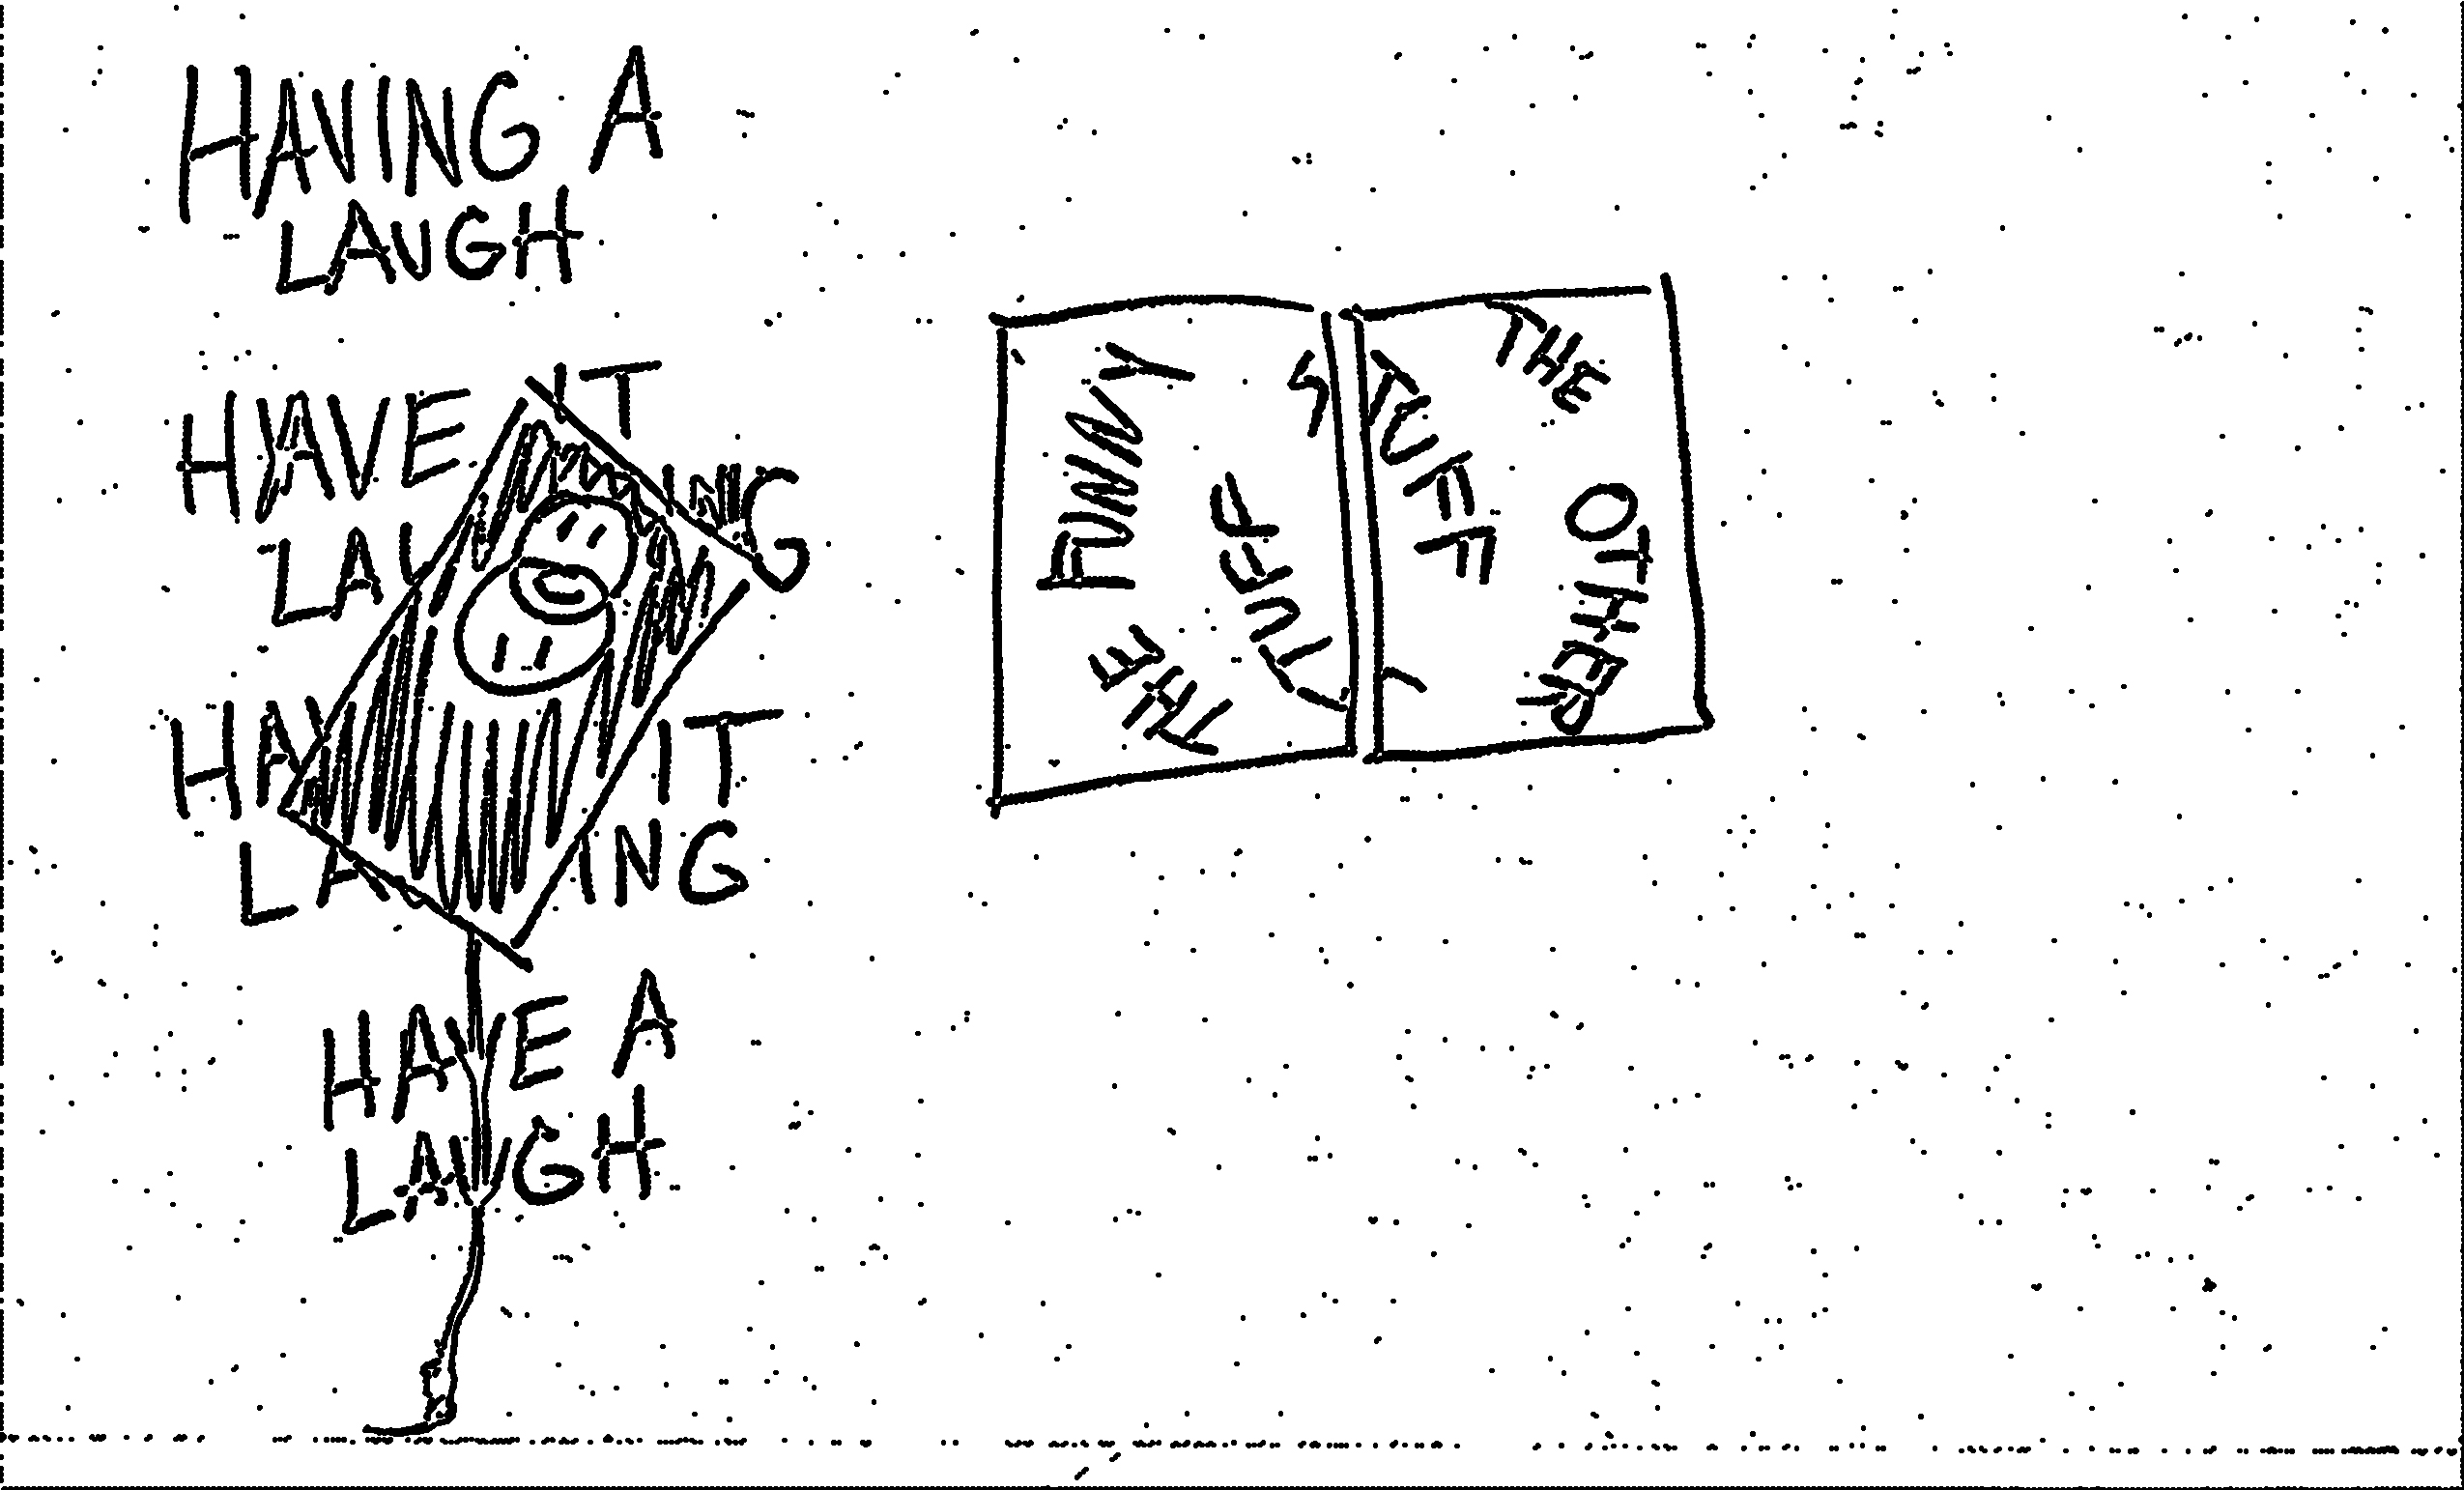 HAVING A
LAUGH
HAVE IT
LAU NG
HAV IT
LA ING
HAVE A
LAUGH
THE
FUNNY
STUFF
THE
OTHER
STUFF